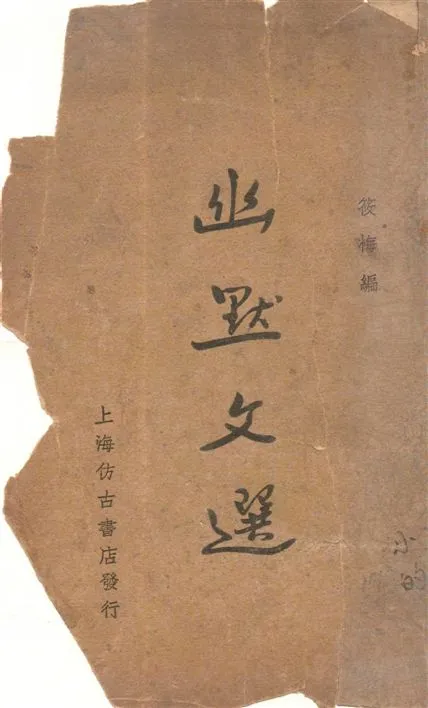 筱梅編
幽默文選
上海仿古書店發行